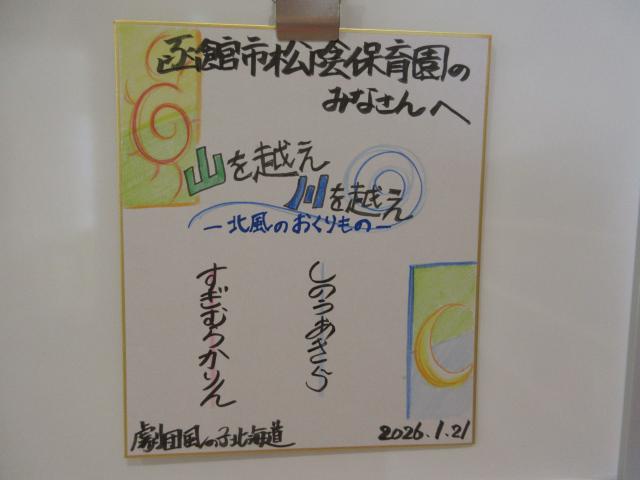 函館市松陰保育園の
みなさんへ
山を越え
川を越え
―北風のおくりもの―
しのうあきら
すぎむらかりん
劇団風の子北海道
2026.1.21